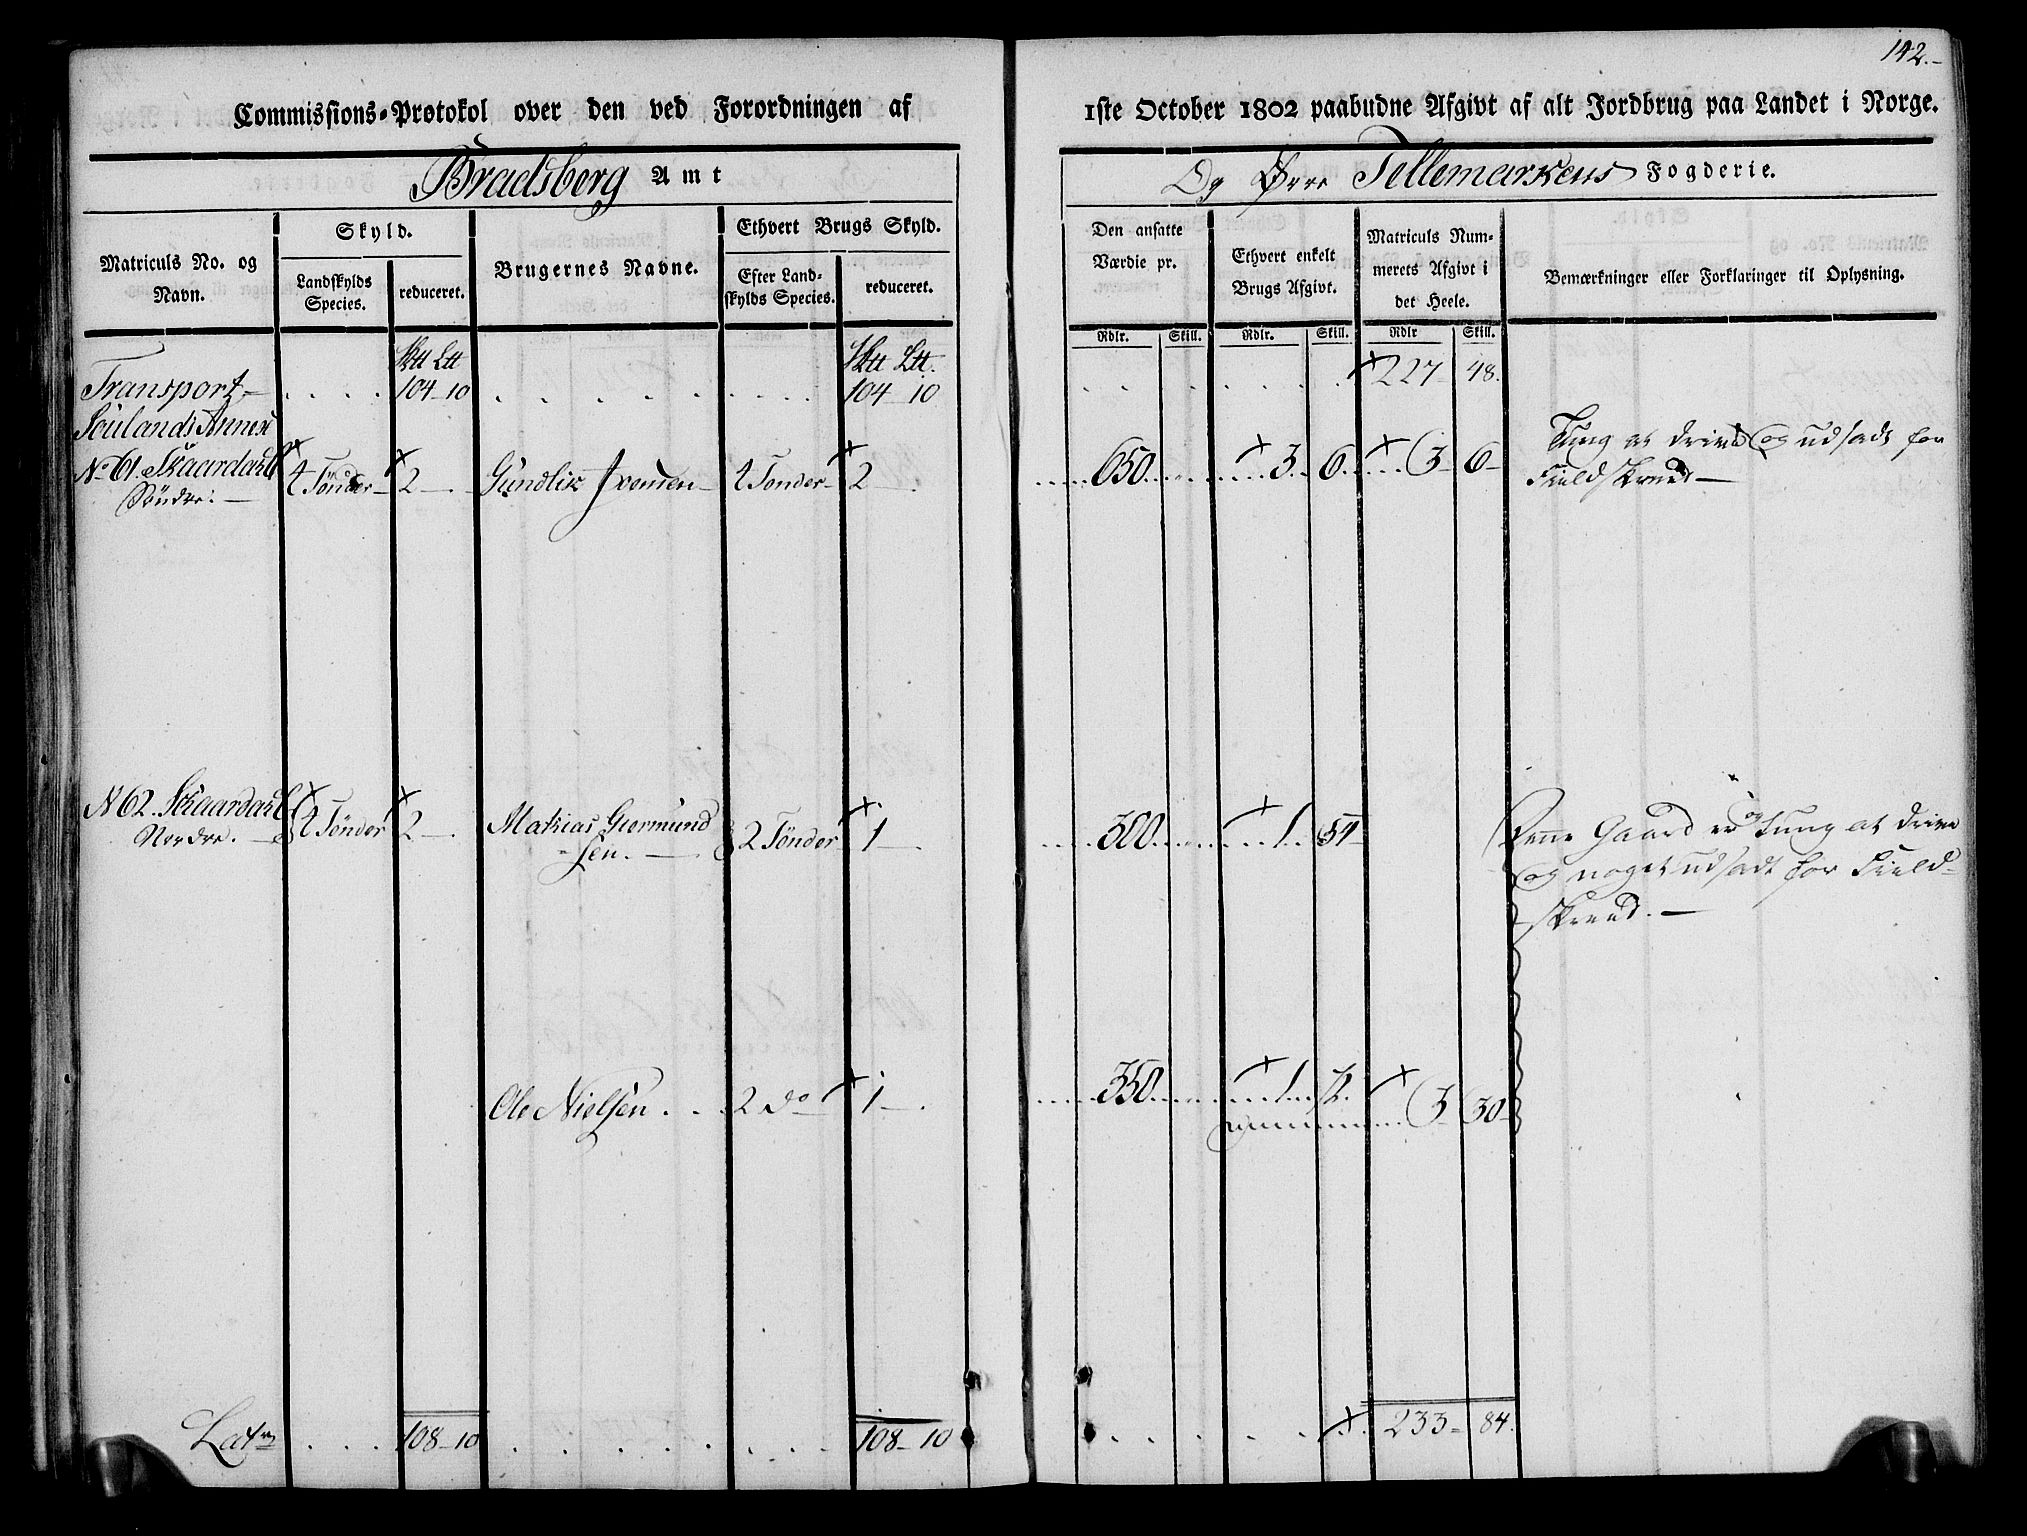 142.-
Commissions-Protokol over den ved Forordningen af 1ste October 1802 paabudne Afgivt af alt Jordbrug paa Landet i Norge.
Bradsberg Amt
Og Øvre Tellemarkens Fogderie.
Matriculs No. og Navn.
Skyld.
Landskylds Species.
reduceret.
Brugernes Navne.
Ethvert Brugs Skyld.
Efter Landskylds Species.
reduceret.
Den ansatte Værdie pr.
Ethvert enkelt Brugs Afgivt.
Matriculs Nummerets Afgivt i det Heele.
Bemærkninger eller Forklaringer til Oplysning.
Rdlr. Skill. Rdlr. Skill. Rdlr Skill.
Transport 104 10 104 10 227 48.
Souland's Annex
No 61. Skaardal
Søndre. 4 Tønder 2 Gundlik Svensen 4 Tønder 2 650 3 6 3 6
Tung at drive og udsadt for
Fieldskreed
N 62. Skaardal
Nordre. 4 Tønder 2 Mathias Giermund
sen. 2 Tønder 1 300 1 54
Denne Gaard er og tung at drive
og noget udsadt for Field
skreed.
Ole Nielsen 2 do 1 350 1 72
3 30
Lat 108 10 108 10 233 84.